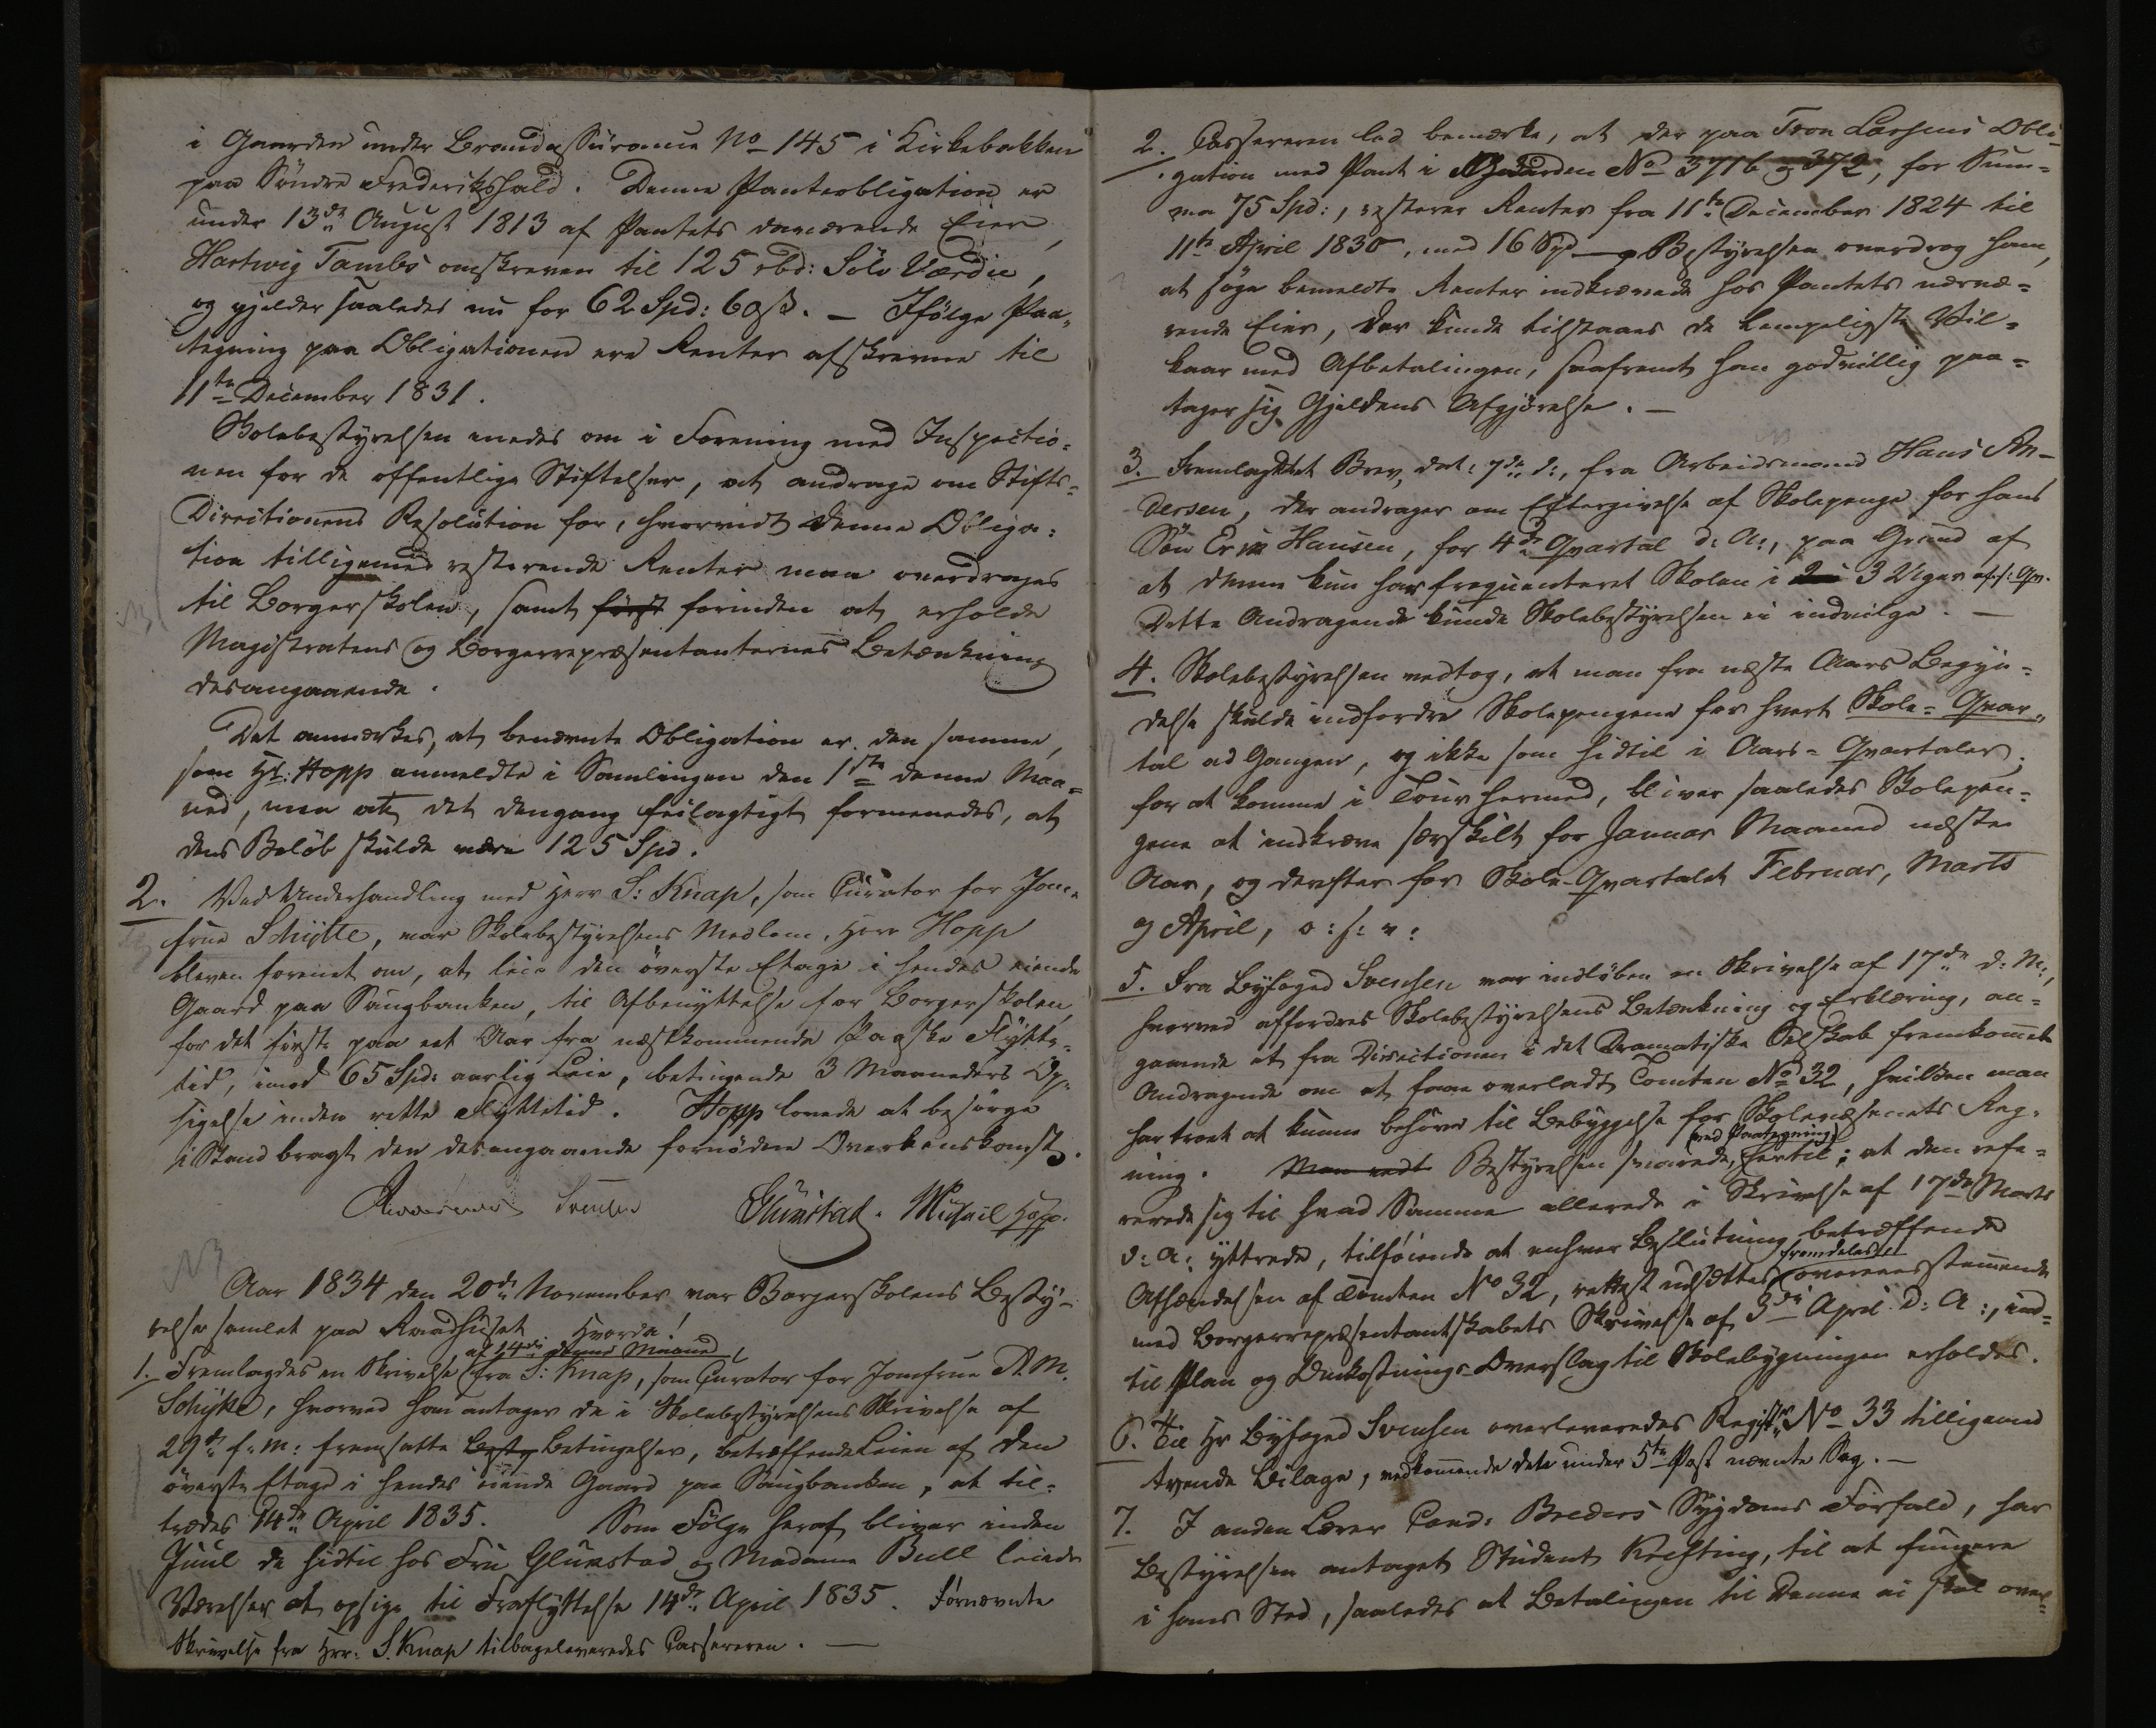 i Gaarden under Brandassurance No 145 i Kirkebakken
paa Söndre Frederikshald. Denne Panteobligation er
under 13de August 1813 af Pantets daværende Eier,
Hartwig Tambs omskreven til 125 rbd: Sölv Værdie,
og gjelder saaledes nu for 62 Spd: 60 ß. — Ifölge Paa-
tegning paa Obligationen ere Renter afskrevne til
11te December 1831.
Skolebestyrelsen enedes om i Forening med Inspectio-
nen for de offentlige Stiftelser, at andrage om Stifts-
Directionens Resolution for, hvorvidt denne Obliga-
tion tilligemed resterende Renter maa overdrages
til Borgerskolen, samt först forinden at erholde
Magistratens og Borgerrepræsentanternes Betænkning
desangaaende.
Det anmærkes, at benævnte Obligation er den samme,
som Hr: Hopp anmeldte i Samlingen den 1ste denne Maa-
ned, men at det dengang feilagtigt formenedes, at
dens Belöb skulde være 125 Spd.
2. Ved Underhandling med Herr S: Knap, som Curator for Jom-
frue Schijtte, var Skolebestyrelsens Medlem, Herr Hopp
bleven forenet om, at leie den överste Etage i hendes eiende
Gaard paa Saugbanken, til Afbenyttelse for Borgerskolen,
for det förste paa eet Aar fra næstkommende Paaske Flytte-
tid, imod 65 Spd: aarlig Leie, betingende 3 Maaneders Op-
sigelse inden rette Flyttetid. Hopp lovede at besörge
i Stand bragt den desangaaende fornödne Overeenskomst.
Svensen Glückstad. Michael Hopp.
Aar 1834 den 20de November var Borgerskolens Besty-
relse samlet paa Raadhuset. Hvorda!
af 14de denne Maaned
1. Fremlagdes en Skrivelse fra S: Knap, som Curator for Jomfrue A. M.
Schijtte, hvorved han antager de i Skolebestyrelsens Skrivelse af
29de f: M: fremsatte Besty Betingelser, betræffende Leien af den
överste Etage i hendes eiende Gaard paa Saugbanken, at til-
trædes 14de April 1835. Som Fölge heraf bliver inden
Juul de hidtil hos Fru Glükstad og Madame Bull leiede
Værelser at opsige til Fraflyttelse 14de April 1835. Fornævnte
Skrivelse fra Hrr: S. Knap tilbageleveredes Cassereren. —
2. Cassereren lod bemærke, at der paa Tron Larsens Obli-
gation med Pant i Gaarden No 371 b og 372, for Sum-
ma 75 Spd:, resterer Renter fra 11te December 1824 til
11te April 1830, med 16 Spd — Bestyrelsen overdrog ham,
at söge bemeldte Renter indkrævede hos Pantets nærvæ-
rende Eier, der kunde tilstaaes de lempeligste Vil-
kaar med Afbetalingen, saafremt han godvillig paa-
tager sig Gjeldens Afgjörelse. —
3. Fremlagdes et Brev, dat: 7de d:, fra Arbeidsmand Hans An-
dersen, der andrager om Eftergivelse af Skolepenge for hans
Sön Eric Hansen, for 4de Qvartal d: A:, paa Grund af
at denne kun har frequenteret Skolen i 2 3 Uger af s: Qv.
Dette Andragende kunde Skolebestyrelsen ei indvilge. —
4. Skolebestyrelsen vedtog, at man fra næste Aars Begyn-
delse skulde indfordre Skolepengene for hvert Skole-Qvar-
tal ad Gangen, og ikke som hidtil i Aars-Qvartaler;
for at komme i Tour hermed, bliver saaledes Skolepen-
gene at indkræve særskilt for Januar Maaned næste
Aar, og derefter for Skole-Qvartalet Februar, Marts
og April, o: s: v:
5. Fra Byfoged Svensen var indlöben en Skrivelse af 17de d: M:,
hvorved affordres Skolebestyrelsens Betænkning og Erklæring, an-
gaaende et fra Directionen i det Dramatiske Selskab fremkommet
Andragende om at faae overladt Tomten No 32, hvilken man
har troet at kunne behöves til Bebyggelse for Skolevæsenets Reg-
(ved Paategning)
ning. Man vedt Bestyrelsen svarede hertil; at den refe-
rerede sig til hvad Samme allerede i Skrivelse af 17de Marts
d: A: yttrede, tilföiende at enhver Beslutning betræffende
fremdeles
Afhændelsen af Tomten No 32, rettest udsættes overeensstemmende
med Borgerrepræsentantskabets Skrivelse af 3de April d: A:, ind-
til Plan og Omkostnings-Overslag til Skolebygningen erholdes.
6. Til Hr Byfoged Svensen overleveredes Registr. No 33 tilligemed
tvende Bilage, vedkommende den under 5te Post nævnte Sag. —
7. I anden Lærer Cand: Breders Sygdoms Forfald, har
Bestyrelsen antaget Student Krefting, til at fungere
i hans Sted, saaledes at Betalingen til denne ei skal over-